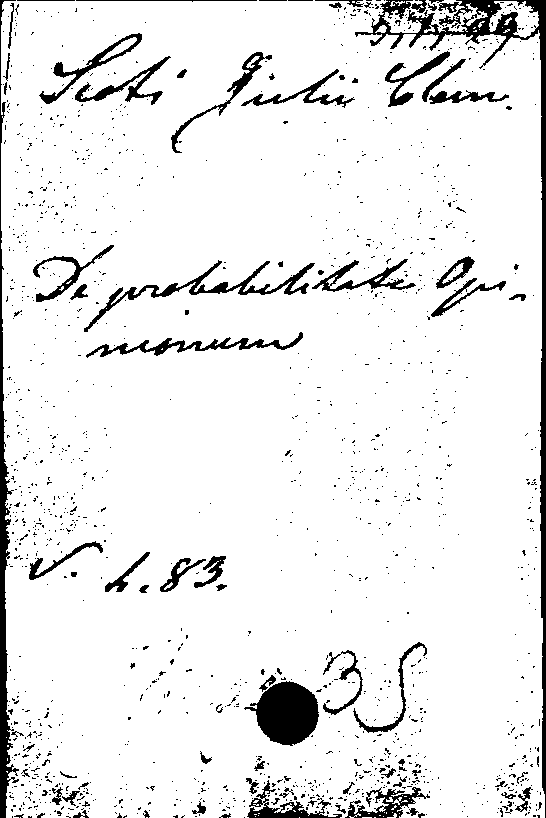 Scoti Julii Clem.
De probabilitate Opi-
nionum
V. h. 83.
BS